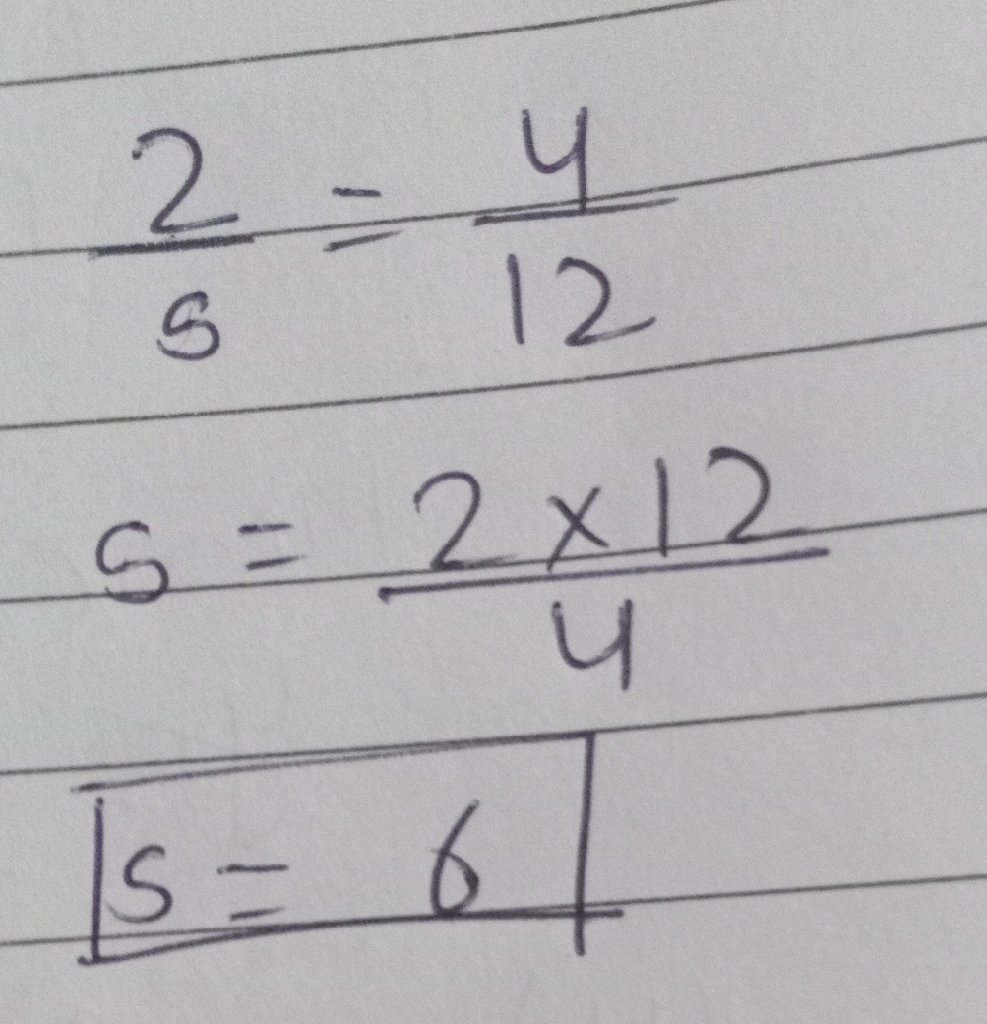 2/s = 4/12
s = 2 x 12/4
s = 6